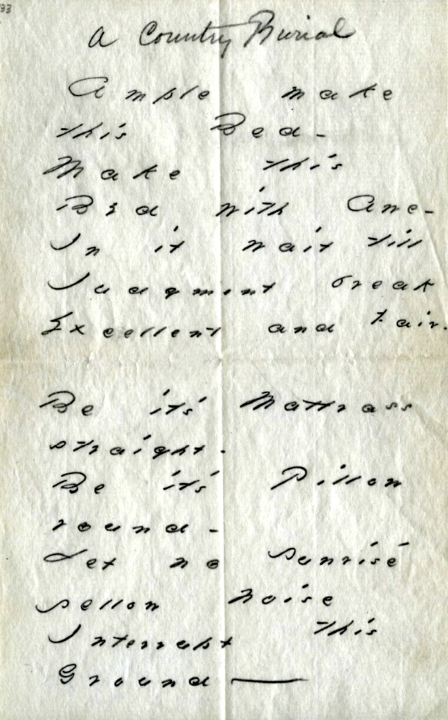 33
A Country Burial
Ample make
this Bed -
Make this
Bed with Awe -
In it wait till
Judgment break
Excellent and Fair.
Be it's Mattrass
straight -
Be it's Pillow
round -
Let no Sunrise
yellow noise
Interrupt this
Ground —